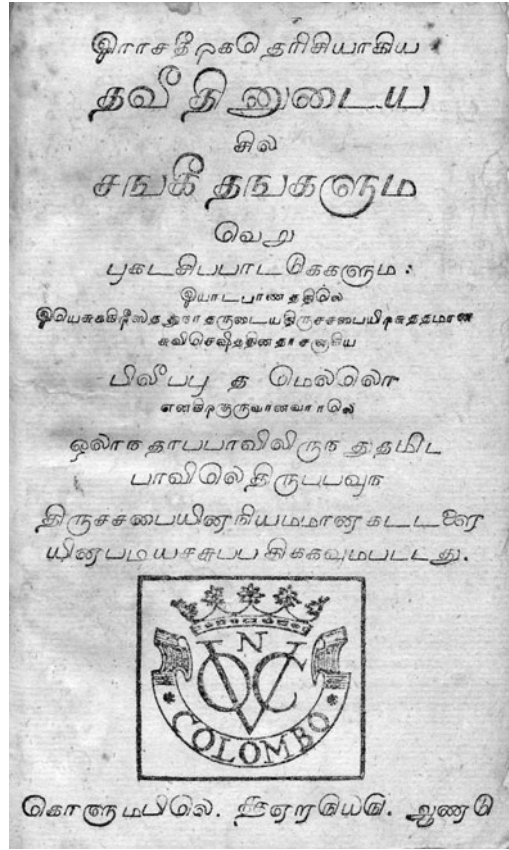 இராசதீறகதெரிசியாகிய
தவீதினுடைய
சில
சஙகீதஙகளும
வெறு
புகடசிபபாடடுககளும :
இயாடபாணததிலெ
இயெசுககிரீஸததுநாதருடையதிருசசபையிறசுததமான
சுவிசெஷததினதாசனாகிய
பிலீபபு த மெலலொ
எனகிறகுருவானவராலெ
ஒலாநதாபபாவிலிருநதுதமிட
பாவிலெதிருபபவுந
திருசசபையினநியமமானகடடளை
யினபடியசசுபபதிககவுமபடடது.
N
VOC
* COLOMBO *
கொளுமபிலெ. ௲௭௱௫௰௫. ஆணடு